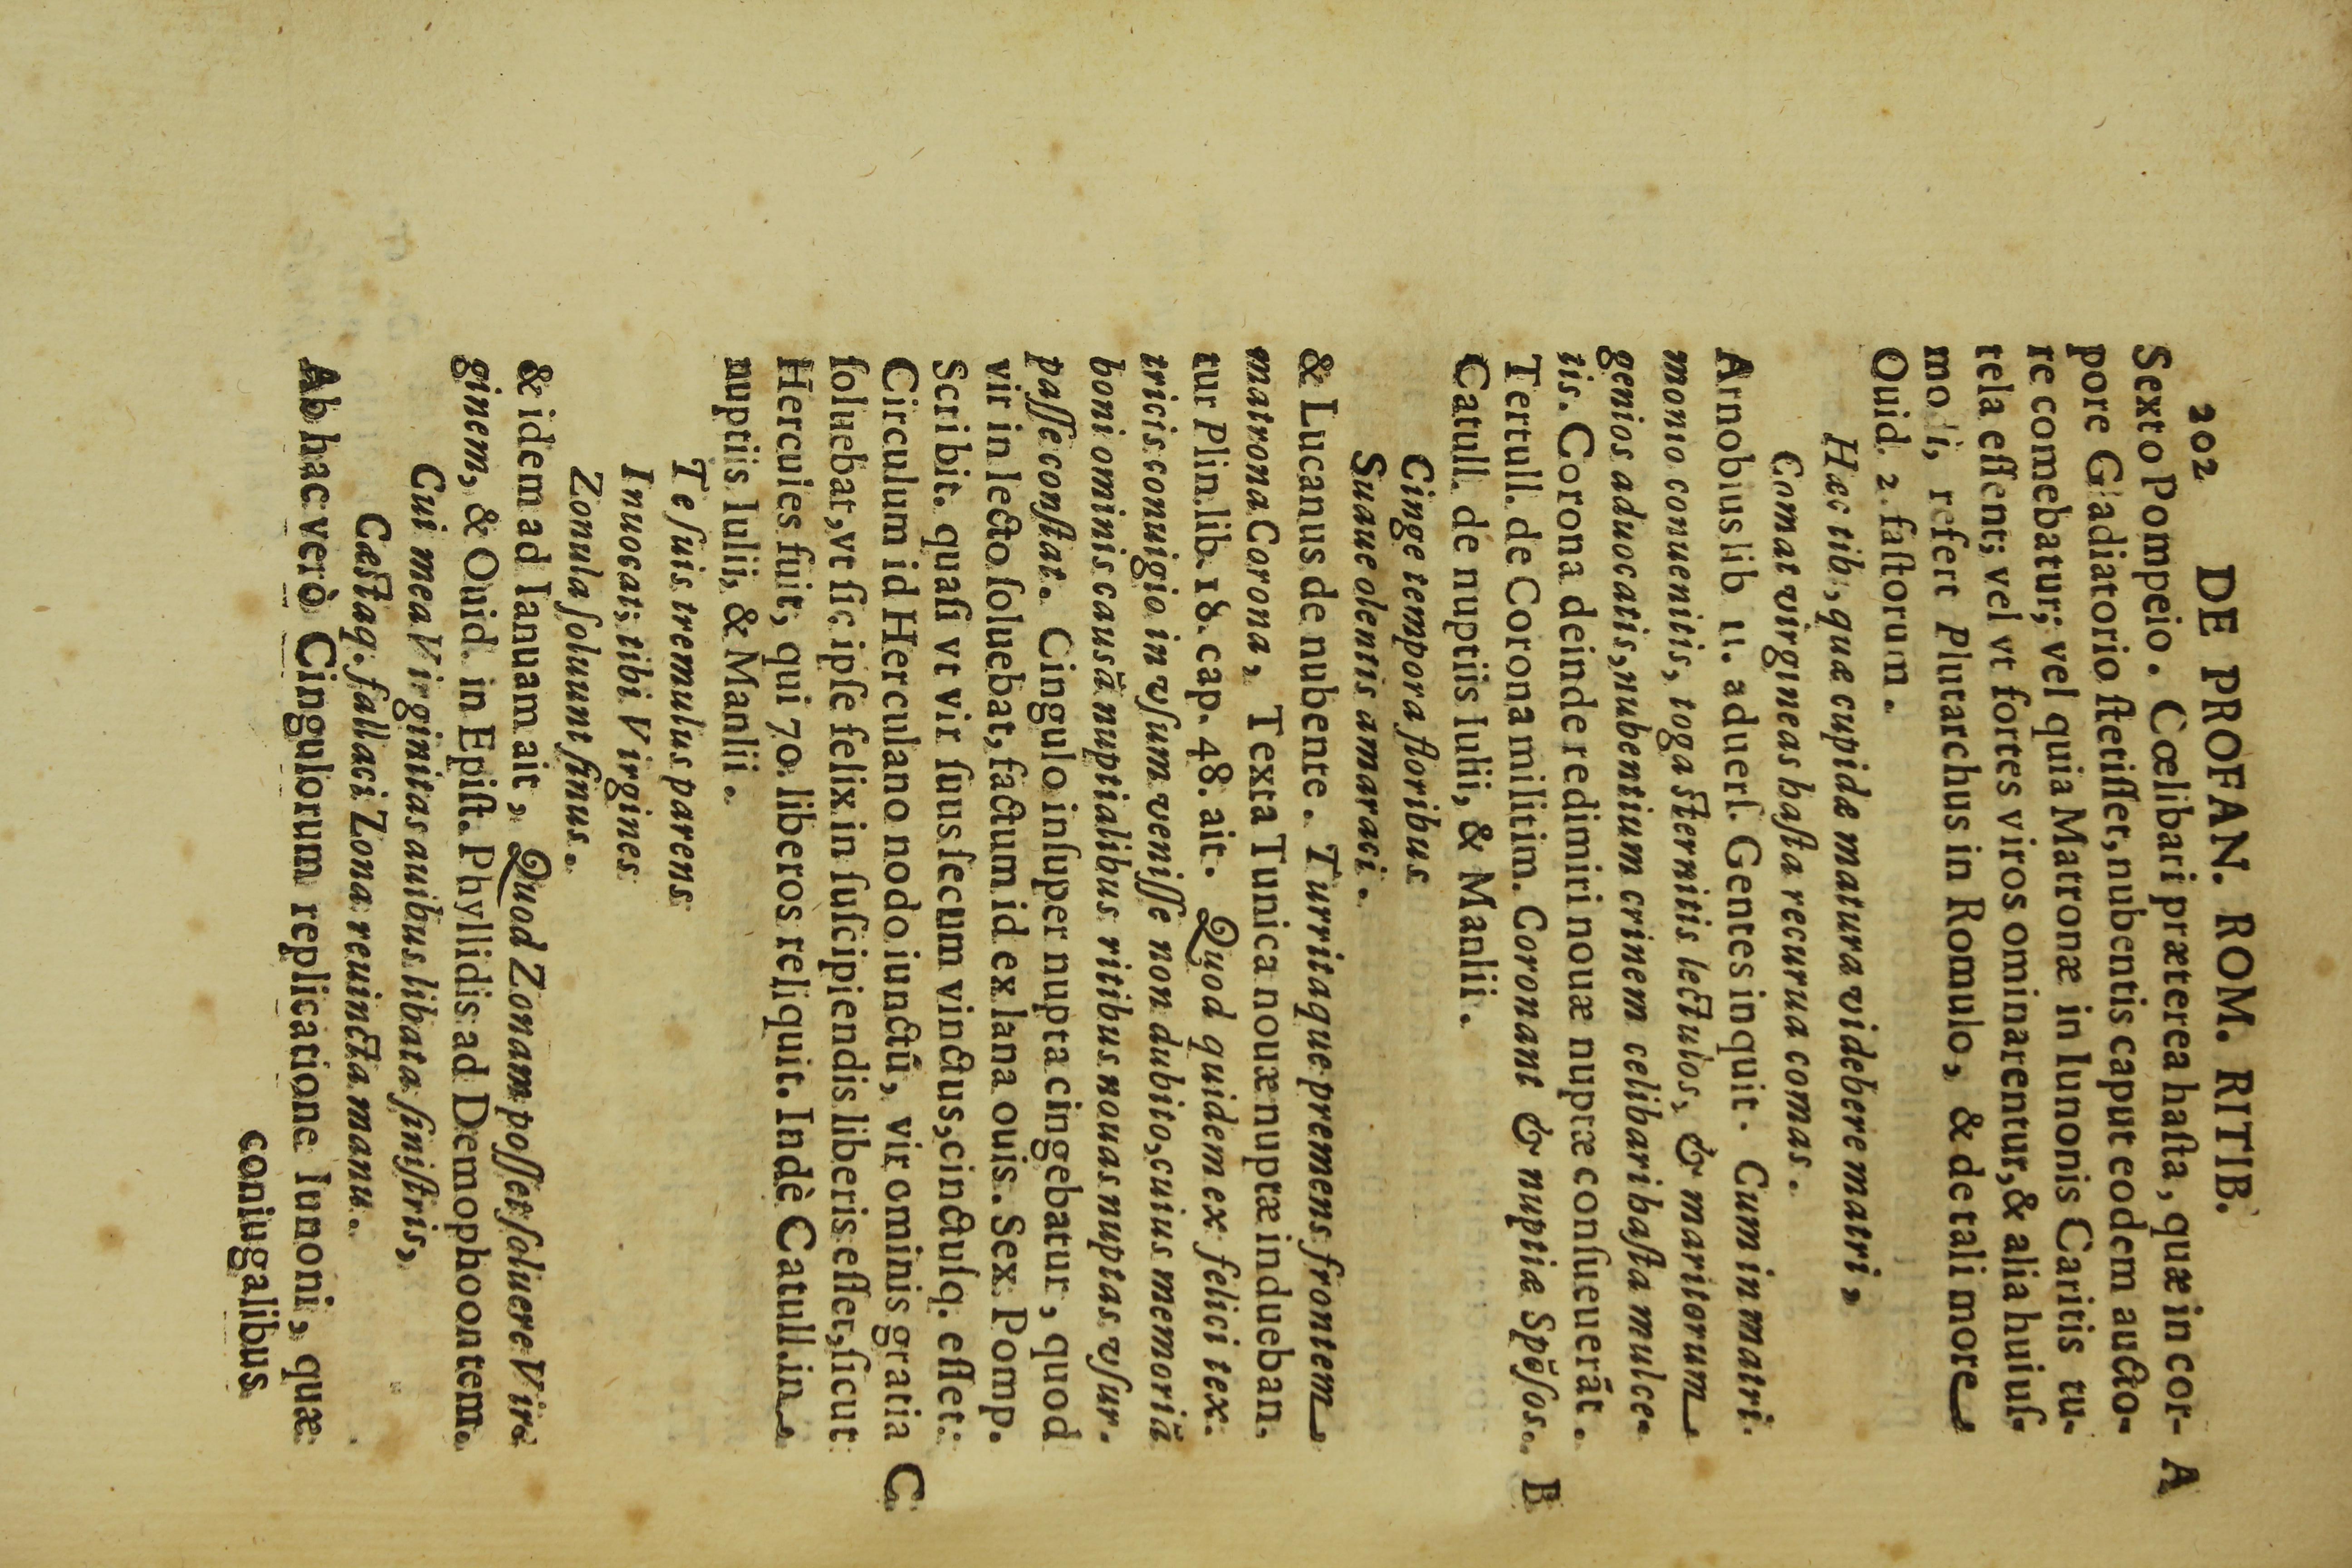 202 DE PROFAN. ROM. RITIB.
Sexto Pompeio. Cœlibari præterea haſta, quæ in cor- A
pore Gladiatorio ſtetiſſet, nubentis caput eodem aucto-
re comebatur; vel quia Matronæ in Iunonis Caritis tu-
tela eſſent; vel vt fortes viros ominarentur, & alia huiuſ-
modi, refert Plutarchus in Romulo, & de tali more
Ouid. 2. faſtorum.
Hæc tib, quæ cupidæ matura videbere matri,
Comat virgineas haſta recurua comas.
Arnobius lib 11. aduerſ. Gentes inquit. Cum in matri-
monio conuenitis, toga ſternitis lectulos, & maritorum
genios aduocatis, nubentium crinem celibari haſta mulce-
tis. Corona deinde redimiri nouæ nuptæ conſueuerāt.
Tertull. de Corona militim. Coronant & nuptiæ Spōſos. B
Catull. de nuptiis Iulii, & Manlii.
Cinge tempora floribus
Suaue olentis amaraci.
& Lucanus de nubente. Turritaque premens frontem
matrona Corona, Texta Tunica nouæ nuptæ indueban-
tur Plin. lib. 18. cap. 48. ait. Quod quidem ex felici tex-
tricis conuigio in vſum veniſſe non dubito, cuius memoriā
boni ominis causā nuptialibus ritibus nouas nuptas vſur-
paſſe conſtat. Cingulo inſuper nupta cingebatur, quod
vir in lecto ſoluebat, factum id ex lana ouis. Sex. Pomp.
Scribit. quaſi vt vir ſuus ſecum vinctus, cinctuſq. eſſet:
Circulum id Herculano nodo iunctū, vir ominis gratia C
ſoluebat, vt ſic ipſe felix in ſuſcipiendis liberis eſſet, ſicut
Hercules fuit, qui 70. liberos reliquit. Indè Catull. in
nuptiis Iulii, & Manlii.
Te ſuis tremulus parens
Inuocat; tibi Virgines
Zonula ſoluunt ſinus.
& idem ad Ianuam ait, Quod Zonam poſſet ſoluere Vir-
ginem, & Ouid. in Epiſt. Phyllidis ad Demophoontem.
Cui mea Virginitas auibus libata ſiniſtris,
Caſtaq. fallaci Zona reuincta manu.
Ab hac verò Cingulorum replicatione Iunoni, quæ
coniugalibus